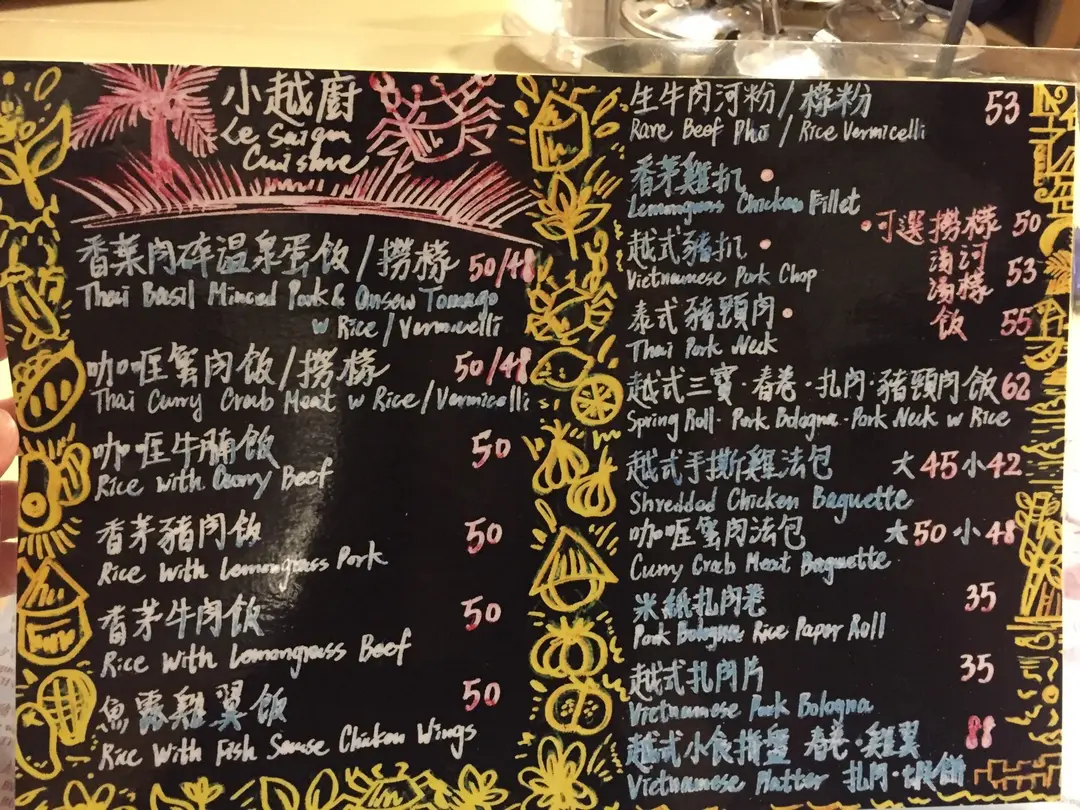 小越廚
Le Saigon
Cuisine
香葉肉碎溫泉蛋飯/撈檬 50/48
Thai Basil Minced Pork & Onsen Tomago
w Rice/Vermicelli
咖喱蟹肉飯/撈檬 50/48
Thai Curry Crab Meat w Rice/Vermicelli
咖喱牛腩飯 50
Rice with Curry Beef
香茅豬肉飯 50
Rice With Lemongrass Pork
香茅牛肉飯 50
Rice With Lemongrass Beef
魚露雞翼飯 50
Rice With Fish Sause Chicken Wings
生牛肉河粉/檬粉 53
Rare Beef Pho / Rice Vermicelli
香茅雞扒
Lemongrass Chicken Fillet
越式豬扒
Vietnamese Pork Chop
泰式豬頸肉
Thai Pork Neck
可選撈檬 50
湯河
湯檬 53
飯 55
越式三寶·春卷·扎肉·豬頸肉飯 62
Spring Roll · Pork Bologna · Pork Neck w Rice
越式手撕雞法包 大45小42
Shredded Chicken Baguette
咖喱蟹肉法包 大50小48
Curry Crab Meat Baguette
米紙扎肉卷 35
Pork Bologna Rice Paper Roll
越式扎肉片 35
Vietnamese Pork Bologna
越式小食拼盤 春卷·雞翼 88
Vietnamese Platter 扎肉·蝦餅